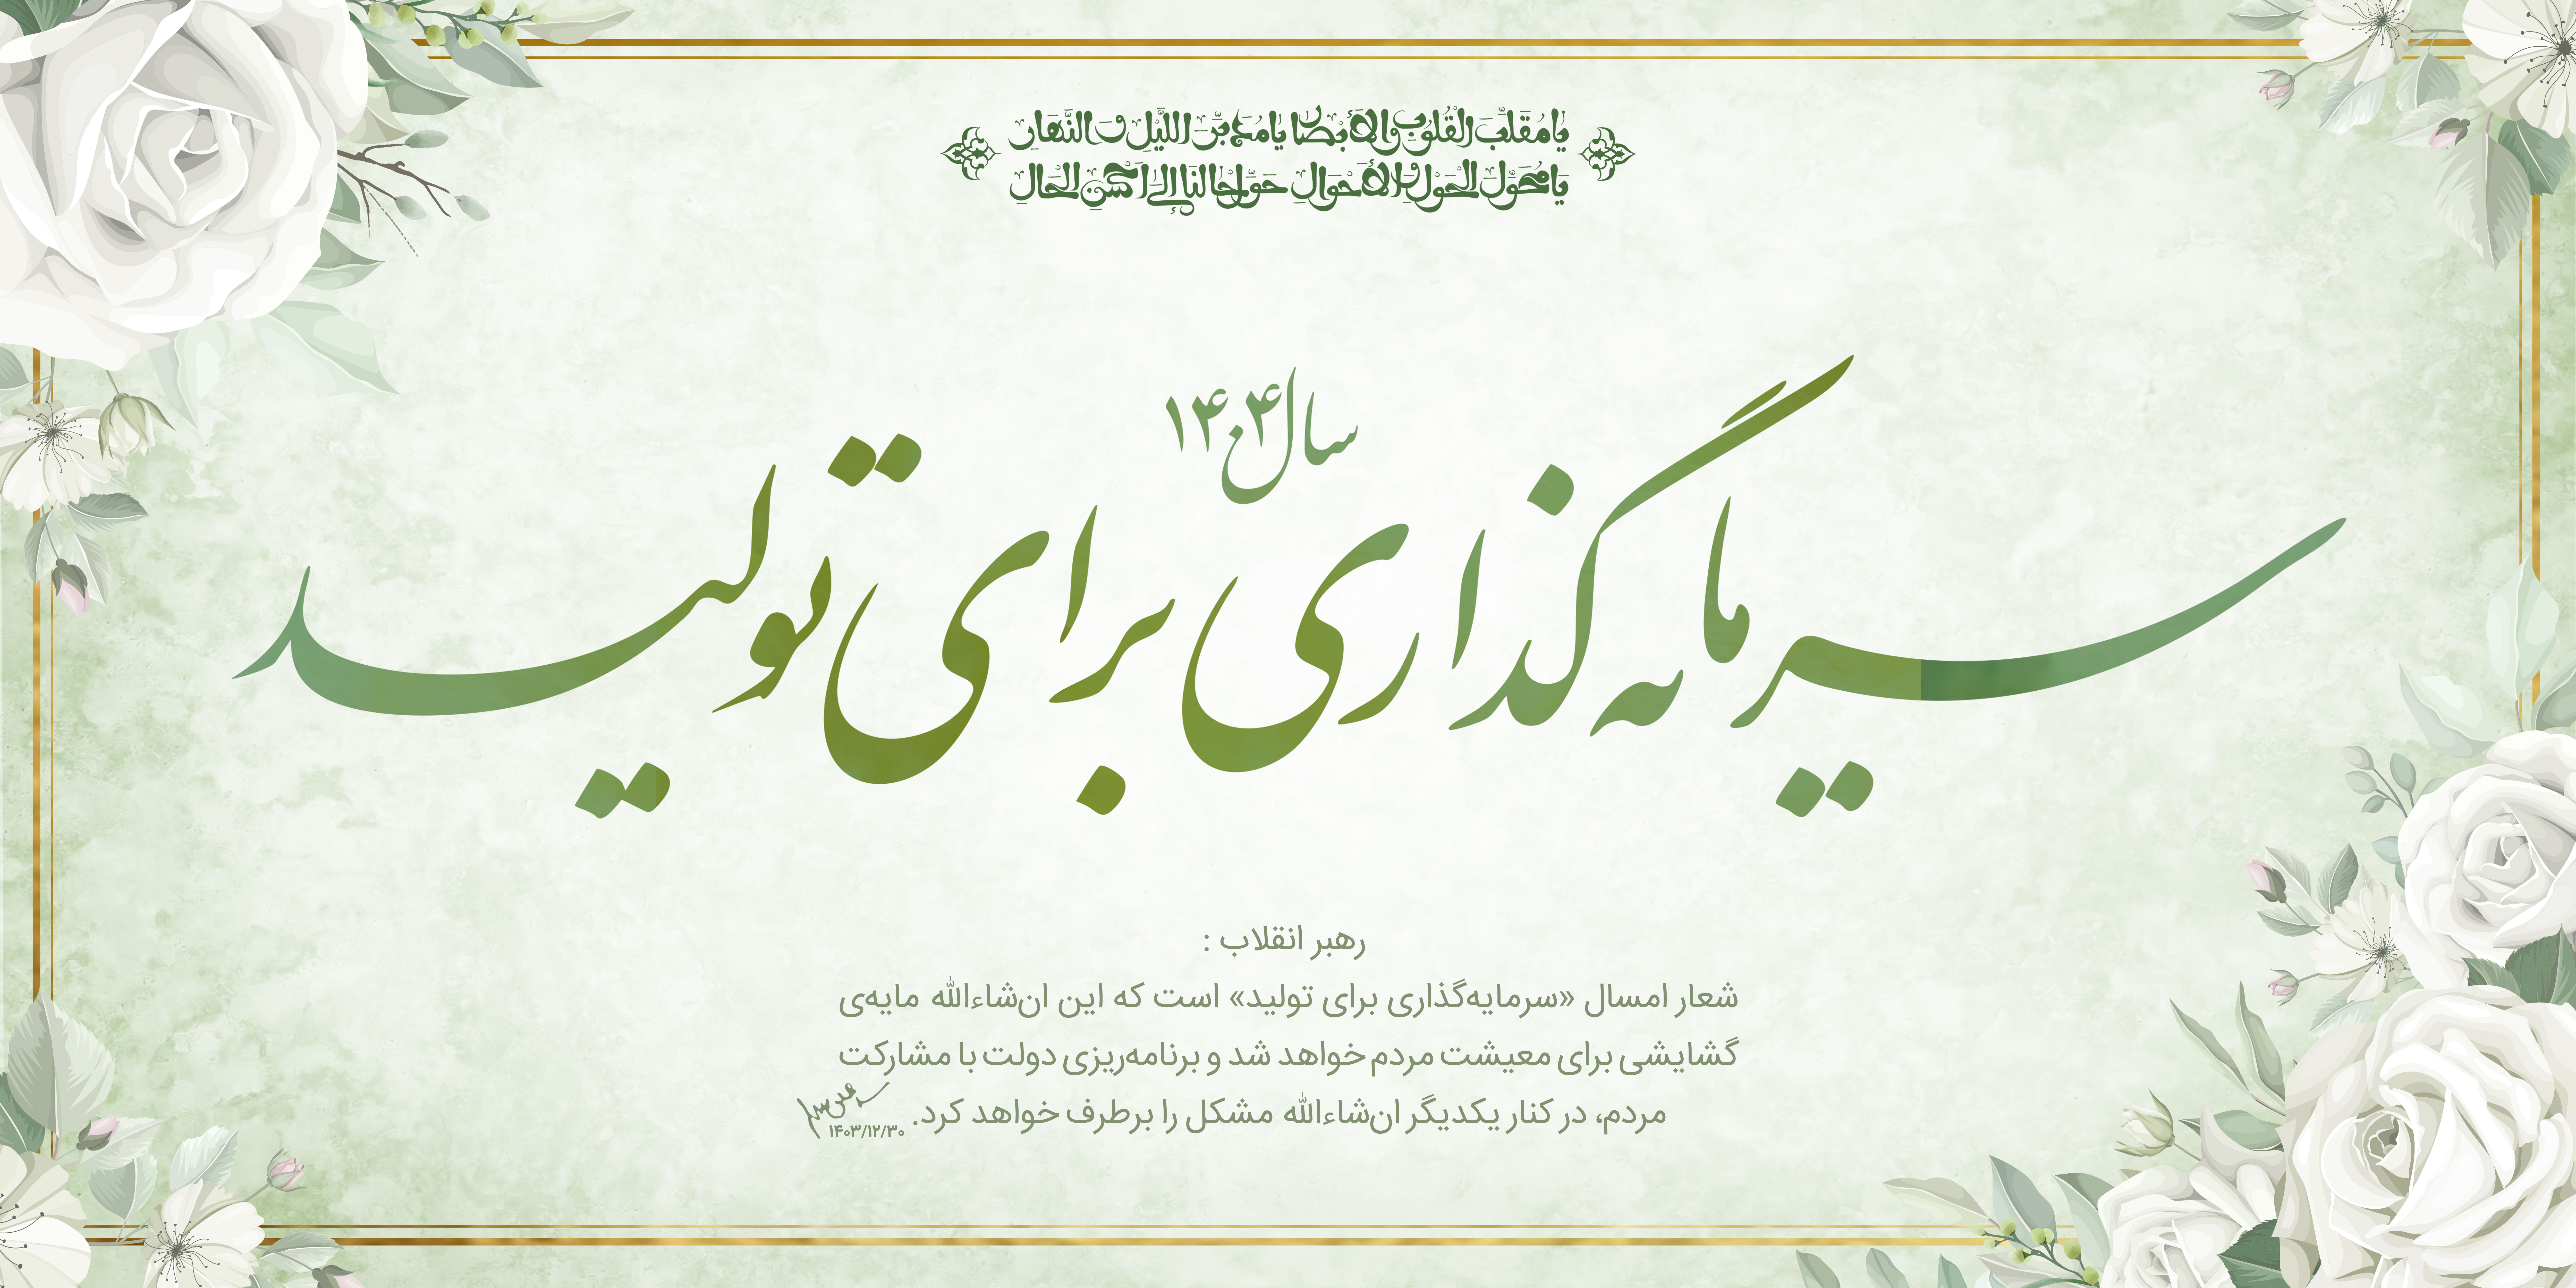 یا مُقَلِّبَ القُلوبِ وَالاَبصار یا مُدَبِّرَ اللَّیلِ وَ النَّهارِ
یا مُحَوِّلَ الحَولِ وَ الاَحوالِ حَوِّل حالَنا اِلی اَحسَنِ الحال
سال ۱۴۰۴
سرمایه گذاری برای تولید
رهبر انقلاب :
شعار امسال «سرمایه‌گذاری برای تولید» است که این ان‌شاءالله مایه‌ی
گشایشی برای معیشت مردم خواهد شد و برنامه‌ریزی دولت با مشارکت
مردم، در کنار یکدیگر ان‌شاءالله مشکل را برطرف خواهد کرد.
۱۴۰۳/۱۲/۳۰